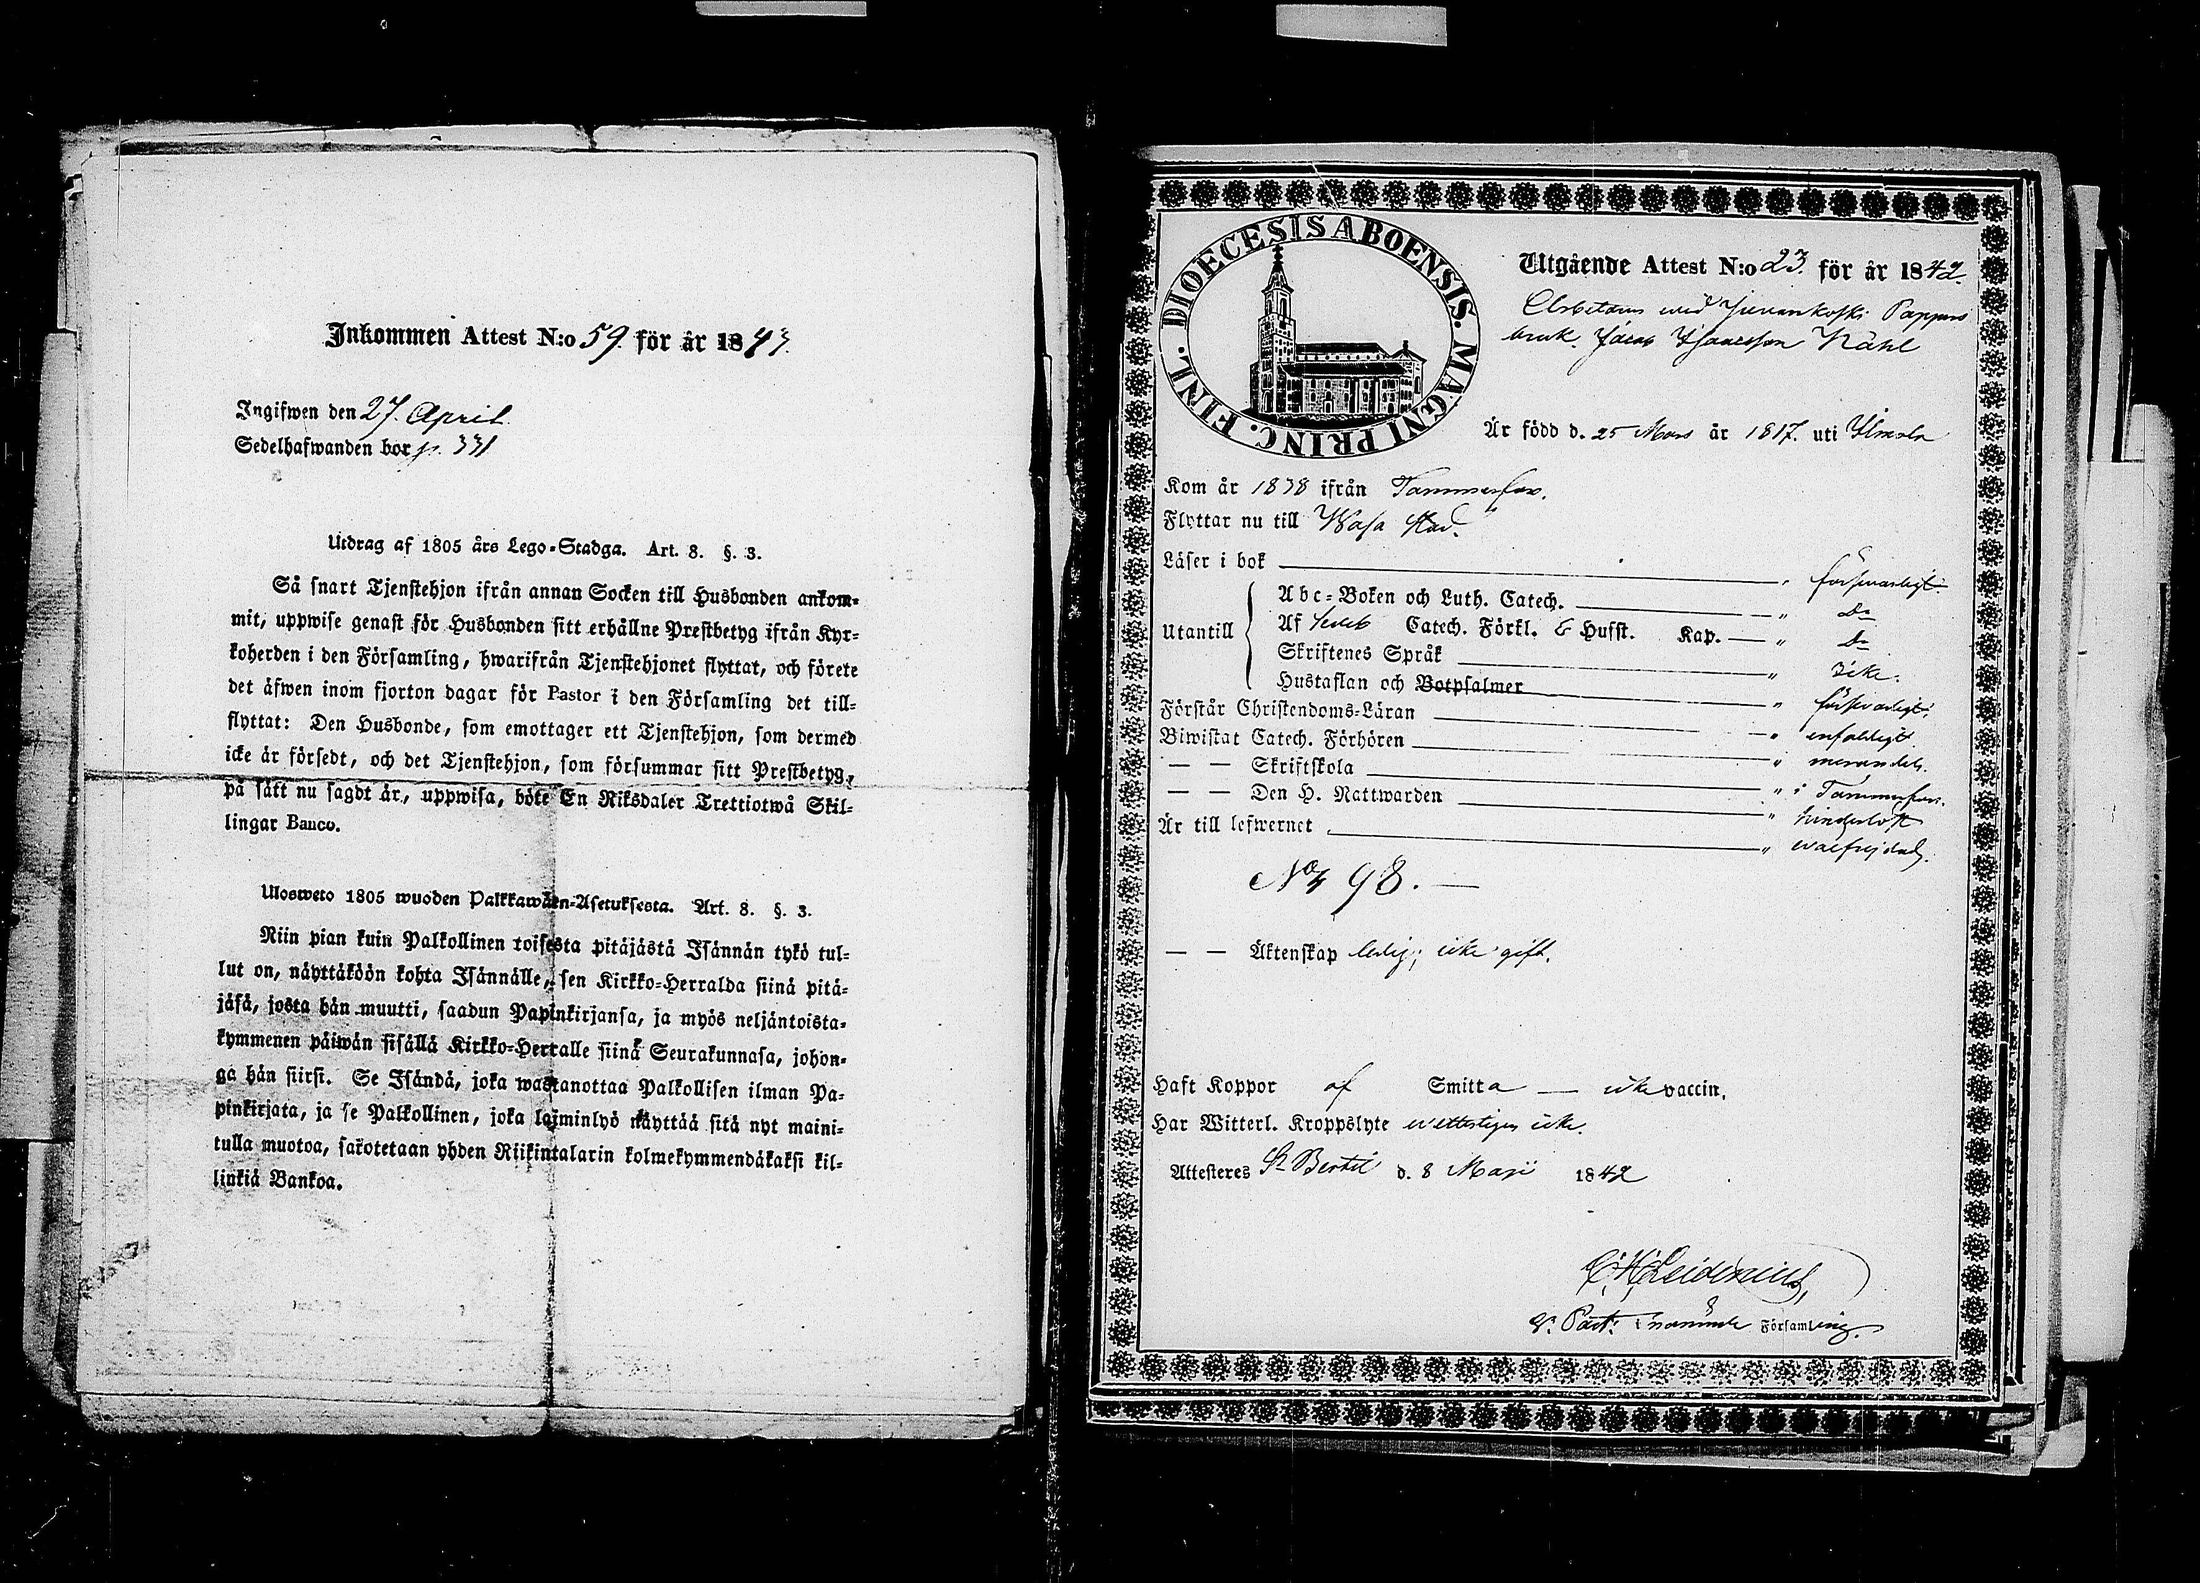 Inkommen Attest N:o 59. för år 1843.
Ingifwen den 27. April.
Sedelhafwanden bor p. 331
Utdrag af 1805 års Lego-Stadga. Art. 8. §. 3.
Så snart Tjenstehjon ifrån annan Socken till Husbonden ankom-
mit, uppwise genast för Husbonden sitt erhållne Prestbetyg ifrån Kyr-
koherden i den Församling, hwarifrån Tjenstehjonet flyttat, och förete
det äfwen inom fjorton dagar för Pastor i den Församling det till-
flyttat: Den Husbonde, som emottager ett Tjenstehjon, som dermed
icke är försedt, och det Tjenstehjon, som försummar sitt Prestbetyg,
på sätt nu sagdt är, uppwisa, böte En Riksdaler Trettiotwå Skil-
lingar Banco.
Ulosweto 1805 wuoden Palkkawäen-Asetuksesta. Art. 8. §. 3.
Niin pian kuin Palkollinen toisesta pitäjästä Isännän tykö tul-
lut on, näyttäköön kohta Isännälle, sen Kirkko-Herralda siinä pitä-
jäsä, josta hän muutti, saadun Papinkirjansa, ja myös neljäntoista-
kymmenen päiwän sisällä Kirkko-Herralle siinä Seurakunnasa, johon-
ga hän siirsi. Se Isändä, joka wastanottaa Palkollisen ilman Pa-
pinkirjata, ja se Palkollinen, joka laiminlyö näyttää sitä nyt maini-
tulla muotoa, sakotetaan yhden Riikintalarin kolmekymmendäkaksi kil-
linkiä Bankoa.
DIOECESIS ABOENSIS. MAGNI PRINC. FINL.
Utgående Attest N:o 23. för år 1842.
Arbetaren wid Juvankoski Pappers
bruk, Jacob Isaacsson Kåhl
Är född d. 25 Mars år 1817. uti Ilmola
Kom år 1838 ifrån Tammerfors.
Flyttar nu till Wasa stad.
Läser i bok " försvarligt.
Utantill
Abc-Boken och Luth. Catech. " Do
Af Catech. Förkl. & Husst. Kap. " Do
Skriftenes Språk " Icke.
Hustaflan och Botpsalmer " försvarligt.
Förstår Christendoms-Läran " enfaldigt
Biwistat Catech. Förhören "
— — Skriftskola " i Tammerfors.
— — Den H. Nattwarden " hinderlöst
Är till lefwernet " wälfrejdad.
No 98. —
— — Äktenskap ledig; icke gift.
Haft Koppor af Smitta — icke vaccin.
Har Witterl. Kroppslyte wetterligen icke.
Attesteres St Bertil d. 8 Maji 1842
C H Leidenius,
V. Past. i nämnde Församling.